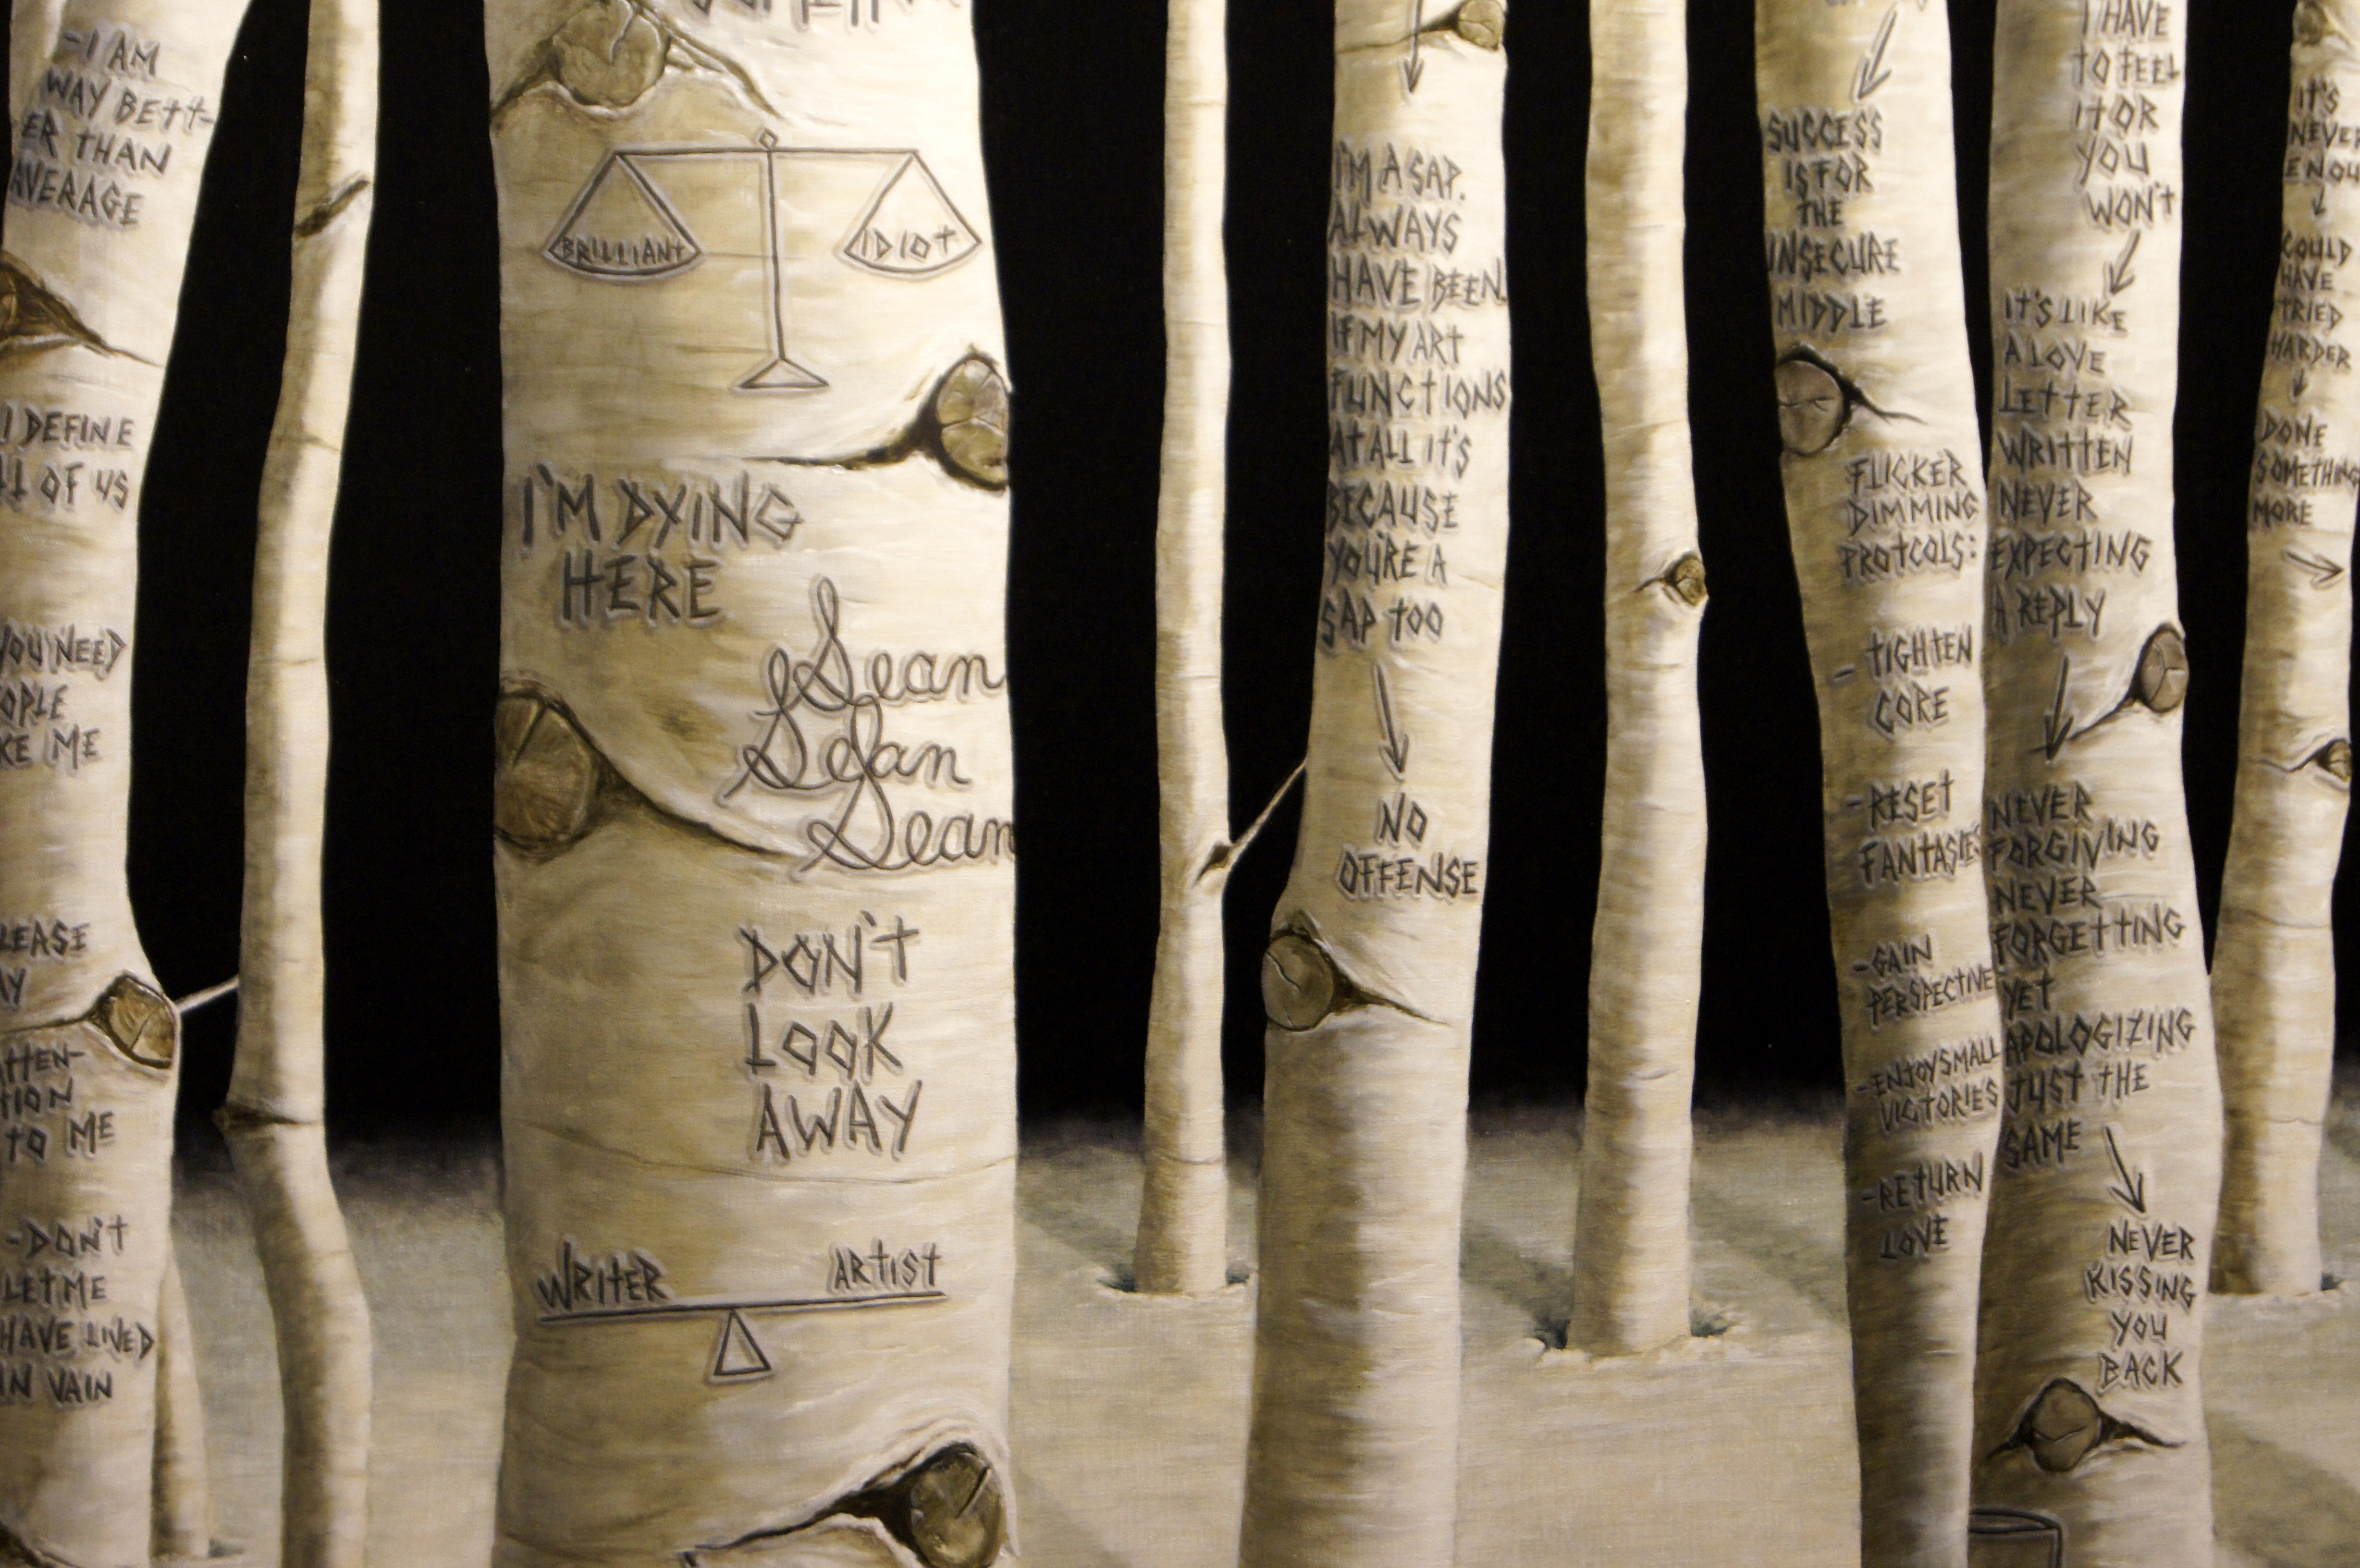 -I AM
WAY BETT-
ER THAN
AVERAGE
I DEFINE
OF US
YOU NEED
ME
TO ME
-DON'T
LET ME
HAVE LIVED
IN VAIN
BRILLIANT
IDIOT
I'M DYING
HERE
Sean
Sean
Sean
DON'T
LOOK
AWAY
WRITER
ARTIST
I'M A SAP.
ALWAYS
HAVE BEEN.
IF MY ART
FUNCTIONS
AT ALL IT'S
BECAUSE
YOU'RE A
SAP TOO
NO
OFFENSE
SUCCESS
IS FOR
THE
INSECURE
MIDDLE
FLICKER
DIMMING
PROTCOLS:
- TIGHTEN
CORE
-RESET
FANTASIES
-GAIN
PERSPECTIVE
-ENJOY SMALL
VICTORIES
-RETURN
LOVE
I HAVE
TO FEEL
IT OR
YOU
WON'T
IT'S LIKE
A LOVE
LETTER
WRITTEN
NEVER
EXPECTING
A REPLY
NEVER
FORGIVING
NEVER
FORGETTING
YET
APOLOGIZING
JUST THE
SAME
NEVER
KISSING
YOU
BACK
IT'S
NEVER
ENOU
COULD
HAVE
TRIED
HARDER
DONE
SOMETHING
MORE